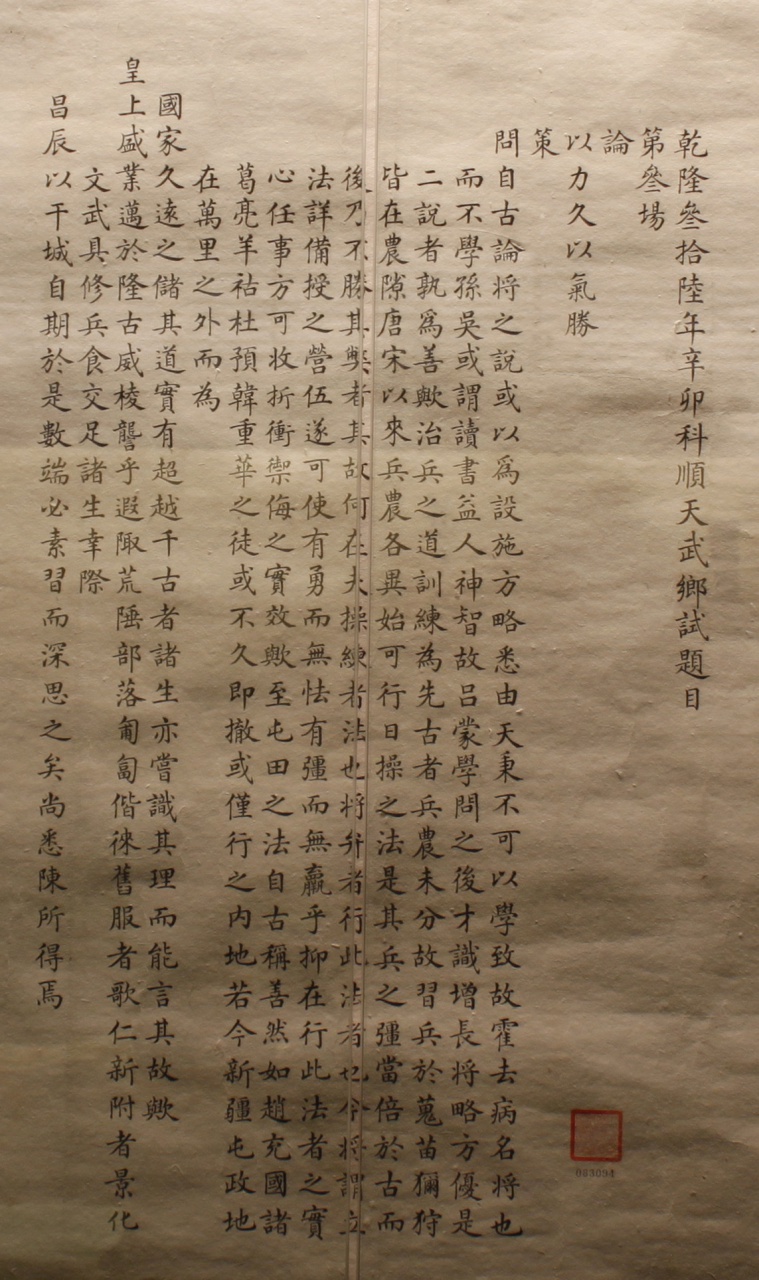 乾隆叄拾陸年辛卯科順天武鄉試題目
第叄場
論
以力久以氣勝
策
問自古論将之說或以爲設施方略悉由天秉不可以學致故霍去病名将也
而不學孫吳或謂讀書益人神智故吕蒙學問之後才識增長将略方優是
二說者孰爲善歟治兵之道訓練為先古者兵農未分故習兵於蒐苗獮狩
皆在農隙唐宋以來兵農各異始可行日操之法是其兵之彊當倍於古而
後乃不勝其獘者其故何在夫操練者法也将弁者行此法者也今将謂立
法詳備授之營伍遂可使有勇而無怯有彊而無羸乎抑在行此法者之實
心任事方可收折衝禦侮之實效歟至屯田之法自古稱善然如趙充國諸
葛亮羊祜杜預韓重華之徒或不久即撤或僅行之内地若今新疆屯政地
在萬里之外而為
國家久遠之儲其道實有超越千古者諸生亦嘗識其理而能言其故歟
皇上盛業邁於隆古威棱讋乎遐陬荒陲部落匍匐偕徠舊服者歌仁新附者景化
文武具修兵食交足諸生幸際
昌辰以干城自期於是數端必素習而深思之矣尚悉陳所得焉
083094